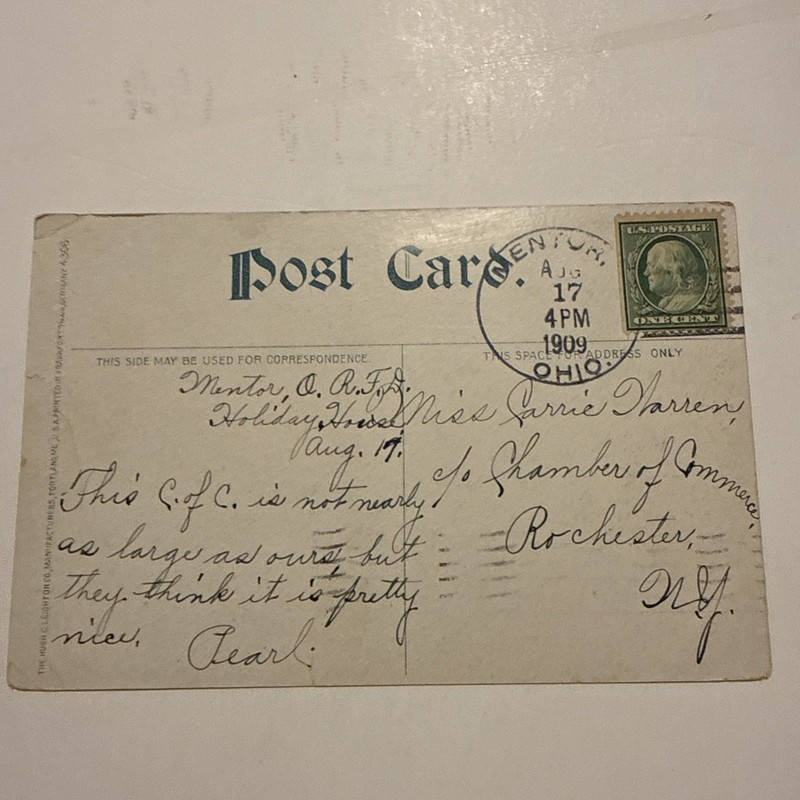 Post Card.
MENTOR,
AUG
17
4PM
1909
OHIO.
U.S. POSTAGE
ONE CENT
THIS SIDE MAY BE USED FOR CORRESPONDENCE.
THIS SPACE FOR ADDRESS ONLY
Mentor, O. R.F.D.
Holiday House
Aug. 17.
This C. of C. is not nearly
as large as ours, but
they think it is pretty
nice.
Pearl.
Miss Carrie Warren,
c/o Chamber of Commerce,
Rochester,
N.Y.
THE HUGH C. LEIGHTON CO., MANUFACTURERS, PORTLAND, ME., U.S.A. PRINTED IN FRANKFORT GERMANY